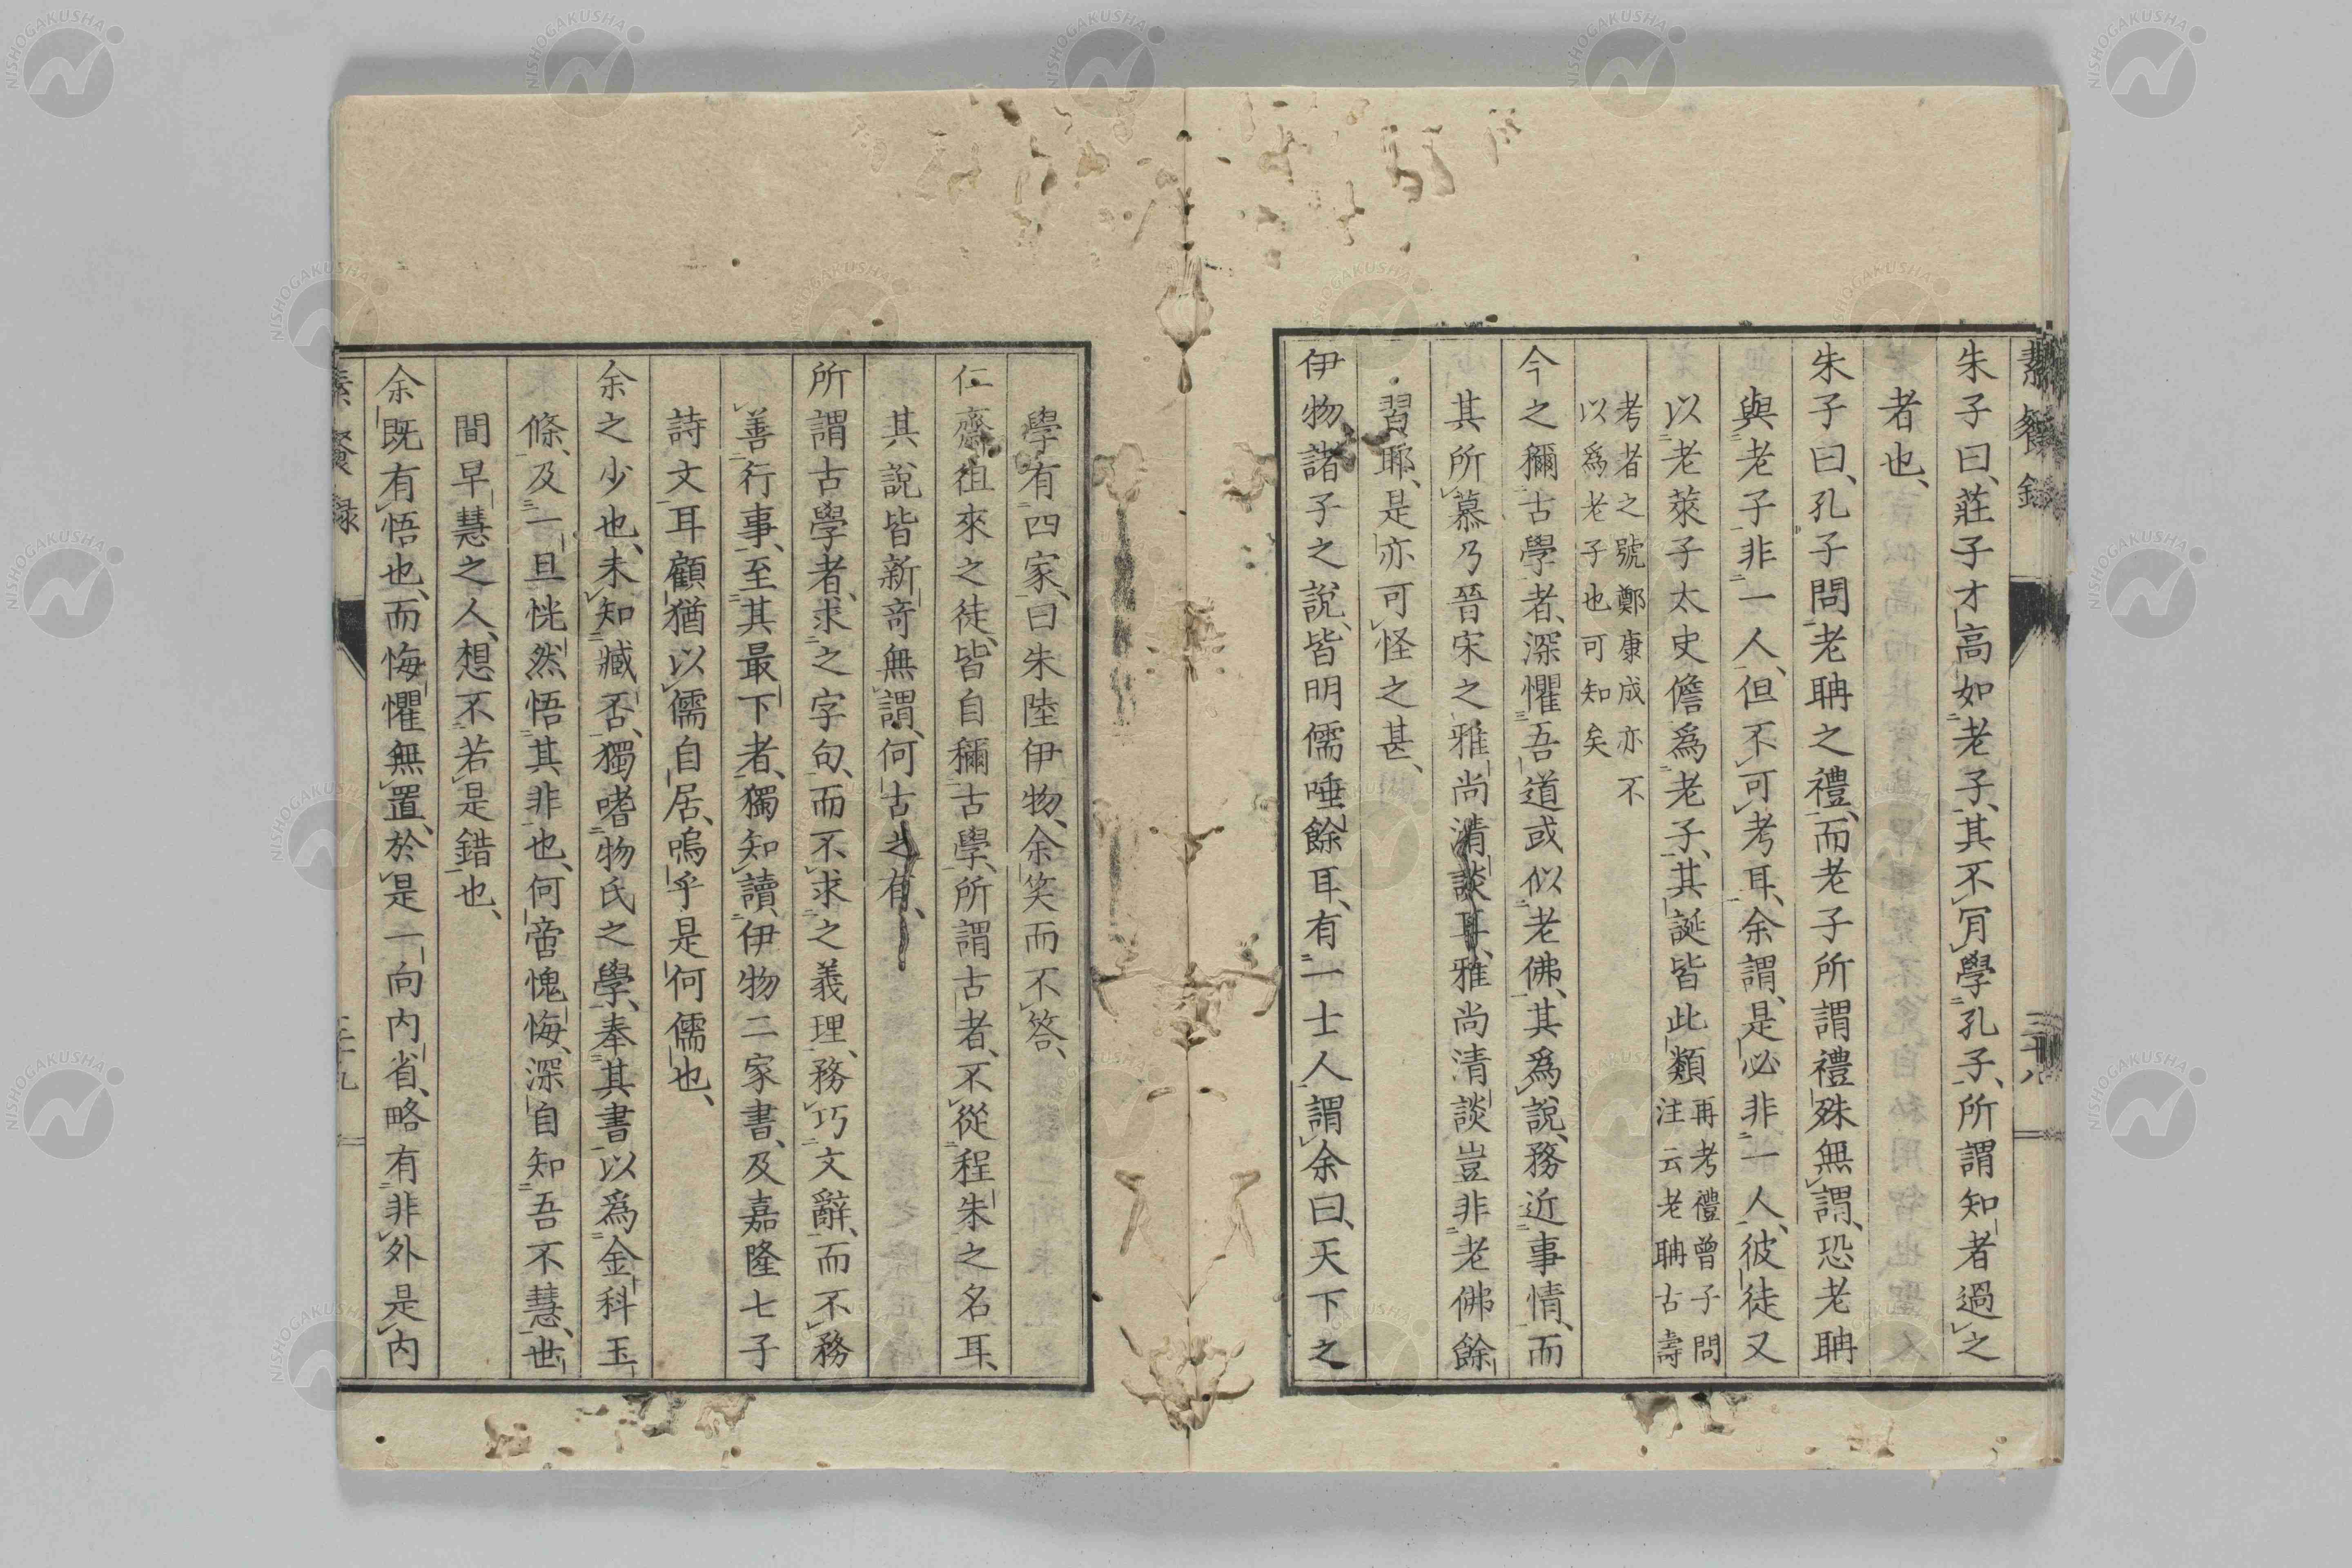 素餐錄
二十八
朱子曰、莊子才高如老子、其不肯學孔子、所謂知者過之
者也、
朱子曰、孔子問老聃之禮、而老子所謂禮殊無謂、恐老聃
與老子非一人、但不可考耳、余謂、是必非一人、彼徒又
以老萊子太史儋爲老子、其誕皆此類再考禮曾子問
注云老聃古壽
考者之號鄭康成亦不
以爲老子也可知矣
今之稱古學者、深懼吾道或似老佛、其爲說、務近事情、而
其所慕乃晉宋之雅尚清談耳、雅尚清談豈非老佛餘
習耶、是亦可怪之甚、
伊物諸子之說、皆明儒唾餘耳、有一士人謂余曰、天下之
學有四家、曰朱陸伊物、余笑而不答、
仁齋徂來之徒、皆自稱古學、所謂古者、不從程朱之名耳、
其說皆新奇無謂、何古之有、
所謂古學者、求之字句、而不求之義理、務巧文辭、而不務
善行事、至其最下者、獨知讀伊物二家書、及嘉隆七子
詩文耳顧猶以儒自居、嗚乎是何儒也、
余之少也、未知臧否、獨嗜物氏之學、奉其書以爲金科玉
條、及一旦恍然悟其非也、何啻愧悔、深自知吾不慧、世
間早慧之人、想不若是錯也、
余既有悟也、而悔懼無置、於是一向内省、略有非外是内
素餐録
二十九
NISHOGAKUSHA